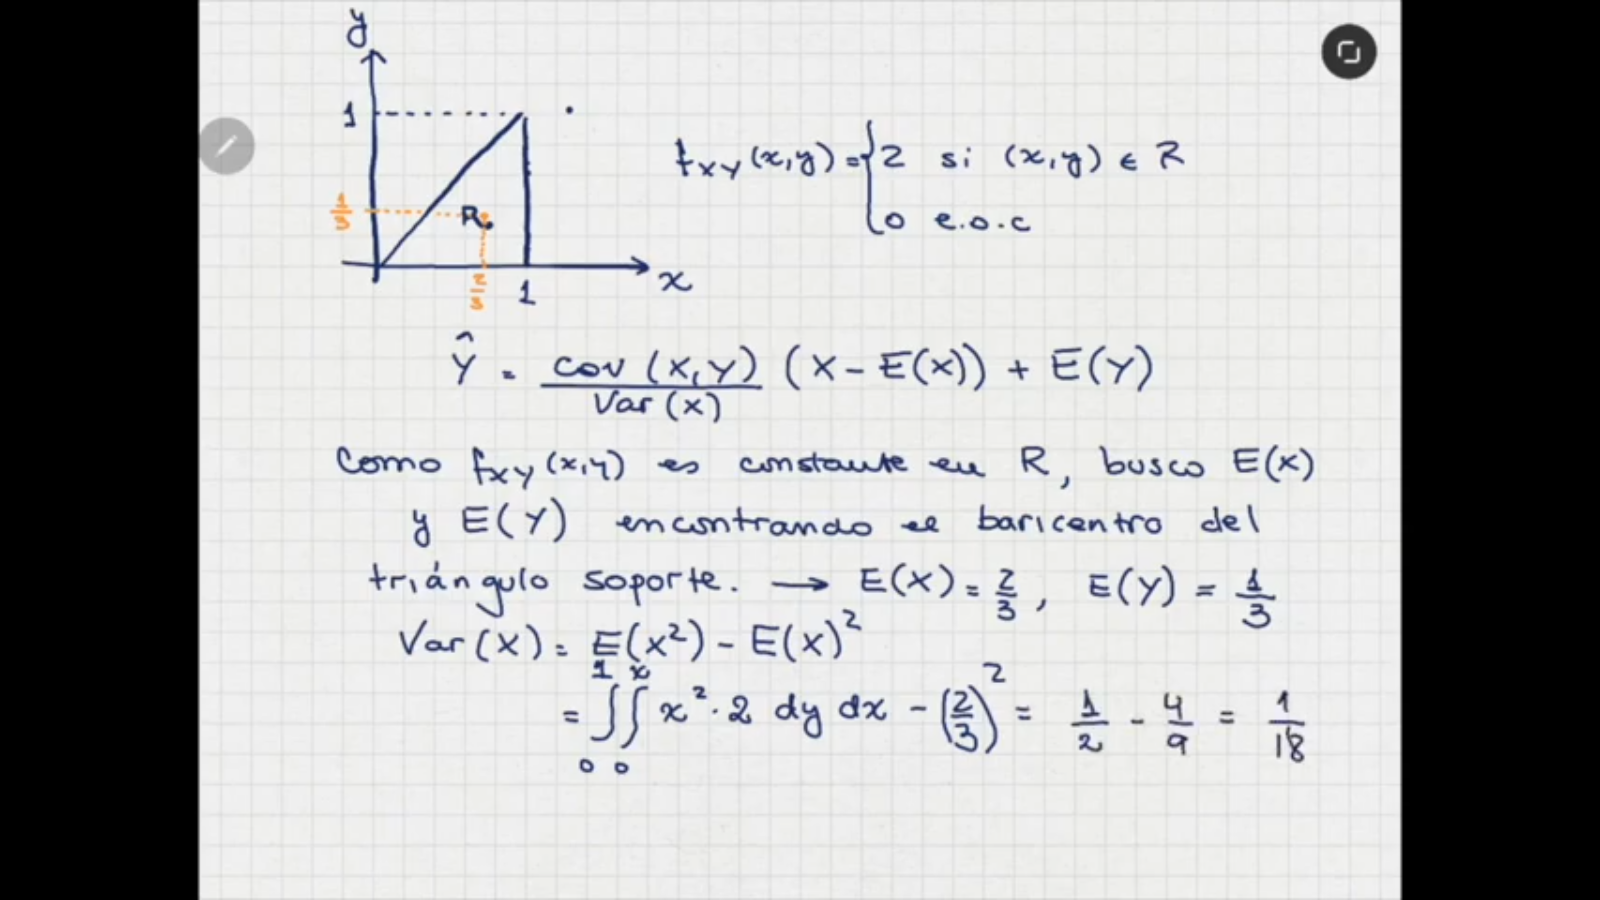 y
1
1/3
R
2/3
1
x
f_XY(x,y) = { 2 si (x,y) ∈ R
0 e.o.c
Ŷ = cov(X,Y)/Var(X) (X - E(X)) + E(Y)
Como f_XY(x,y) es constante en R, busco E(X)
y E(Y) encontrando el baricentro del
triángulo soporte. → E(X) = 2/3, E(Y) = 1/3
Var(X) = E(X²) - E(X)²
= ∫₀¹ ∫₀ˣ x² · 2 dy dx - (2/3)² = 1/2 - 4/9 = 1/18